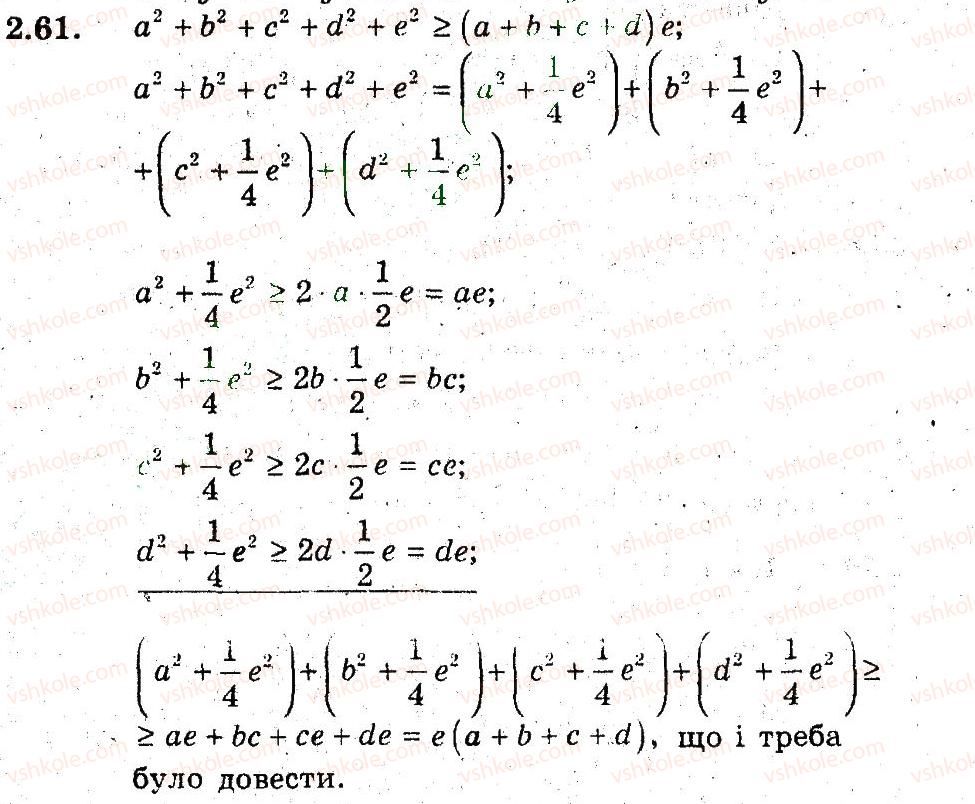 2.61. a² + b² + c² + d² + e² ≥ (a + b + c + d)e;
a² + b² + c² + d² + e² = (a² + 1/4 e²) + (b² + 1/4 e²) +
+ (c² + 1/4 e²) + (d² + 1/4 e²);
a² + 1/4 e² ≥ 2 · a · 1/2 e = ae;
b² + 1/4 e² ≥ 2b · 1/2 e = bc;
c² + 1/4 e² ≥ 2c · 1/2 e = ce;
d² + 1/4 e² ≥ 2d · 1/2 e = de;
(a² + 1/4 e²) + (b² + 1/4 e²) + (c² + 1/4 e²) + (d² + 1/4 e²) ≥
≥ ae + bc + ce + de = e(a + b + c + d), що і треба
було довести.